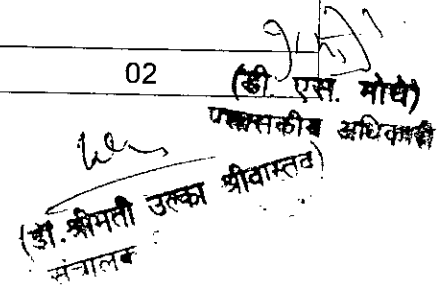 02
(डी. एस. मोघे)
प्रशासकीय अधिकारी
(डॉ. श्रीमती उल्का श्रीवास्तव)
संचालक